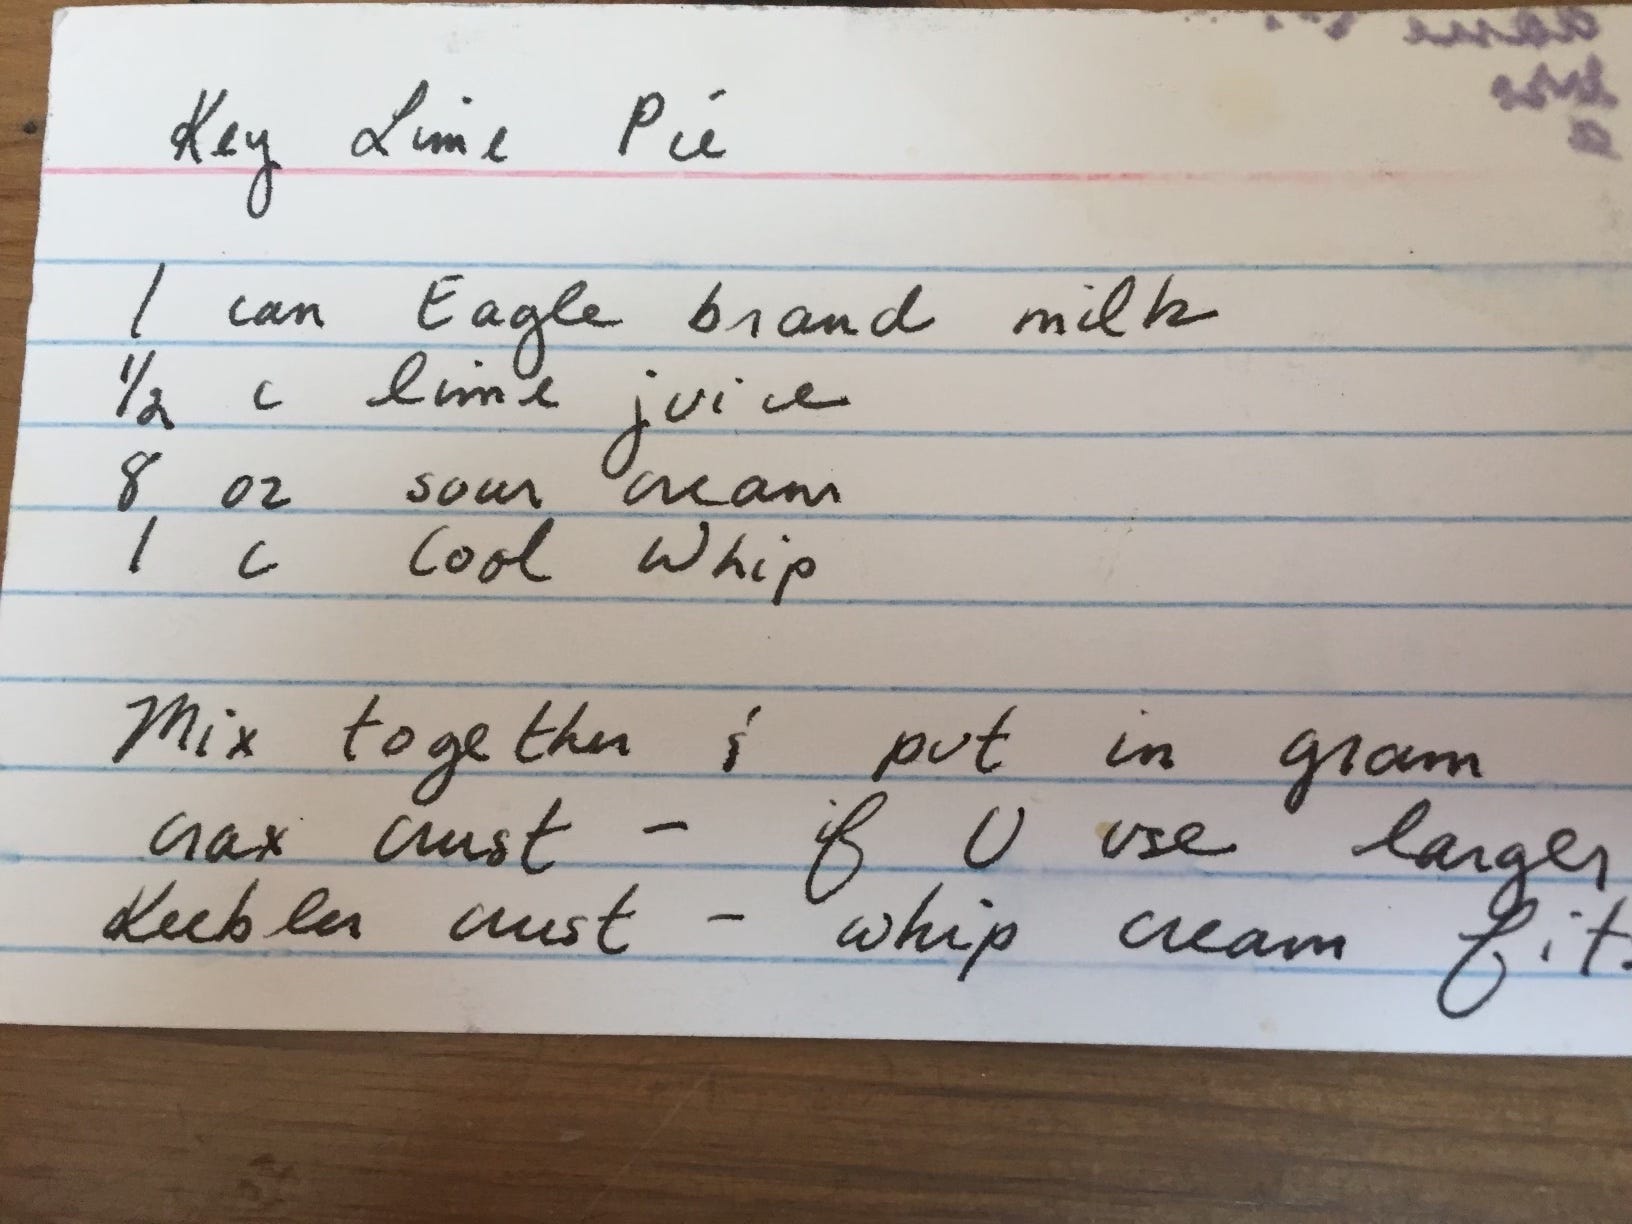 Key Lime Pie
1 can Eagle brand milk
1/2 c lime juice
8 oz sour cream
1 c Cool Whip
Mix together & put in gram
crax crust - if U use larger
Keebler crust - whip cream fits